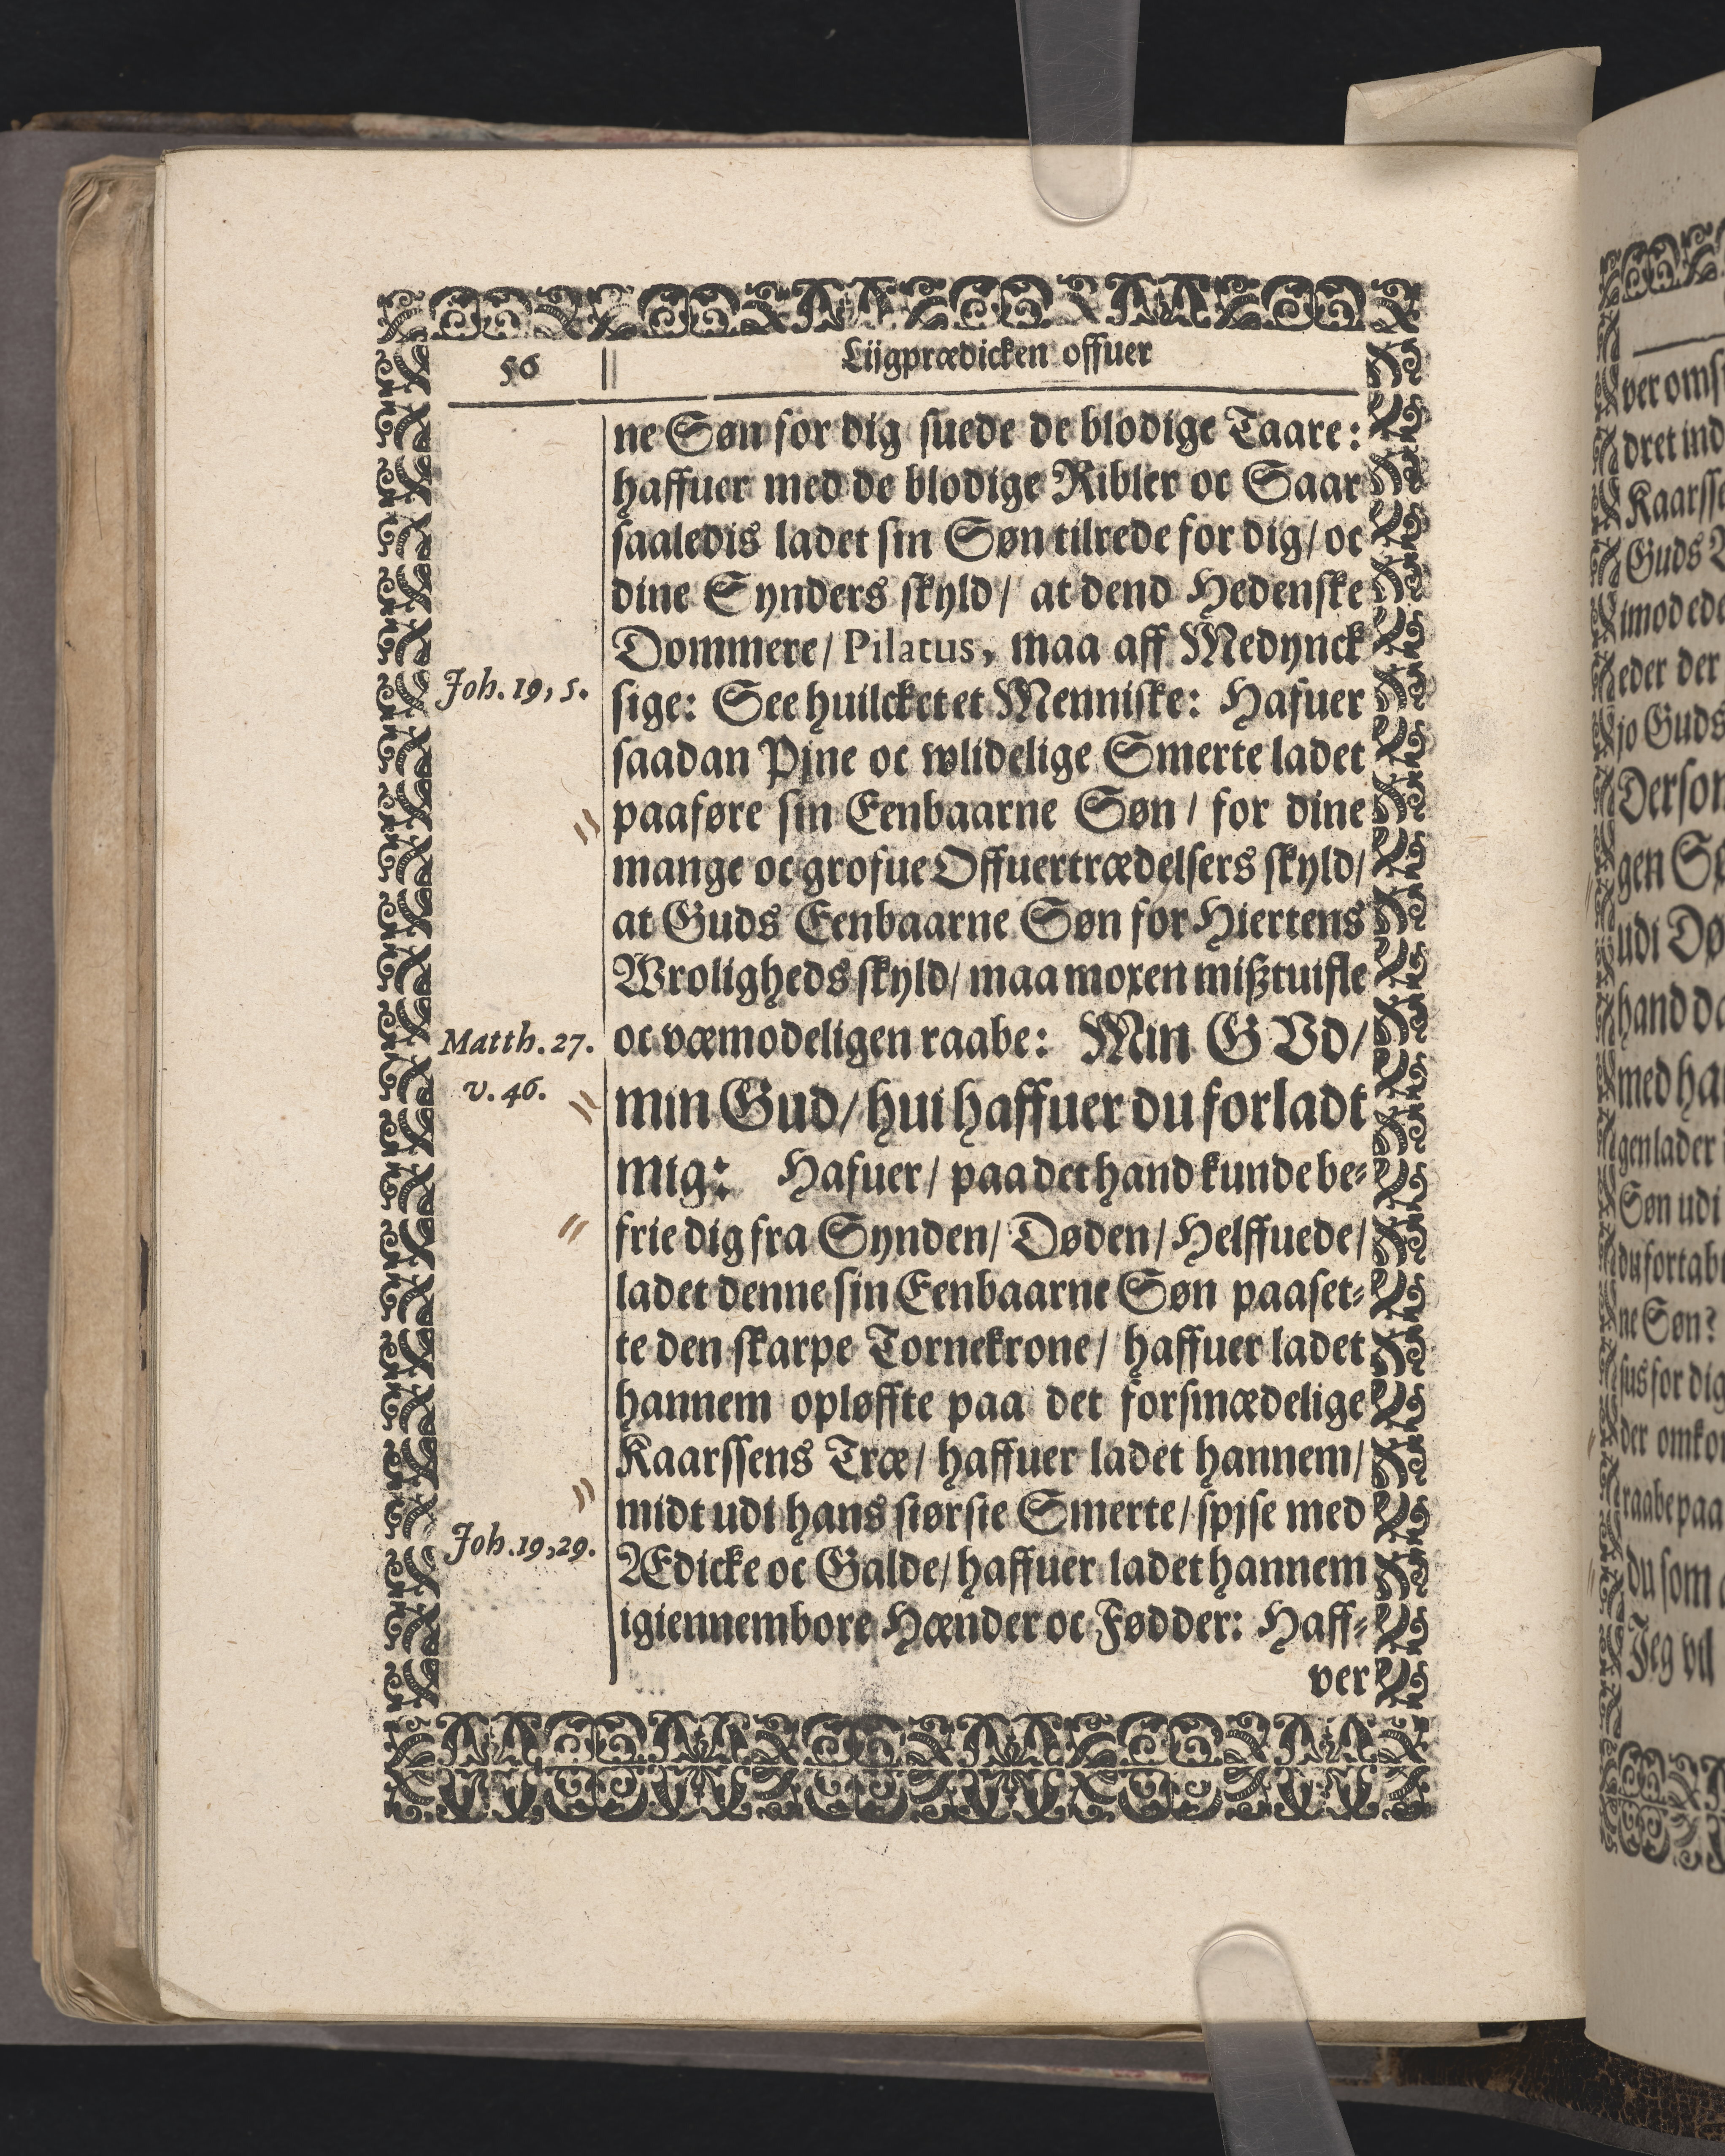 56
Liigprædicken offuer
ne Søn for dig suede de blodige Taare:
haffuer med de blodige Ribler oc Saar
saaledis ladet sin Søn tilrede for dig/ oc
dine Synders skyld/ at dend Hedenske
Dommere/ Pilatus, maa aff Medynck
Joh. 19, 5.
sige: See huilcket et Menniske: Hafuer
saadan Pjne oc wlidelige Smerte ladet
paaføre sin Eenbaarne Søn/ for dine
mange oc grofue Offuertrædelsers skyld/
at Guds Eenbaarne Søn for Hiertens
Wroligheds skyld/ maa moxen mißtuifle
Matth. 27.
v. 46.
oc væmodeligen raabe: Min GVd/
min Gud/ hui haffuer du forladt
mig: Hafuer/ paa det hand kunde be-
frie dig fra Synden/ Døden/ Helffuede/
ladet denne sin Eenbaarne Søn paaset-
te den skarpe Tornekrone/ haffuer ladet
hannem opløffte paa det forsmædelige
Kaarssens Træ/ haffuer ladet hannem/
midt udi hans største Smerte/ spjse med
Joh. 19, 29.
Ædicke oc Galde/ haffuer ladet hannem
igiennembore Hænder oc Fødder: Haff-
ver
ver oms
dret ind
Kaarsse
Guds
imod ede
eder der
jo Guds
Derson
gen Sø
udi Dø
hand da
med ha
gen lader
Søn udi
du fortab
ne Søn?
sus for dig
der omko
raabe paa
du som
Jeg vil